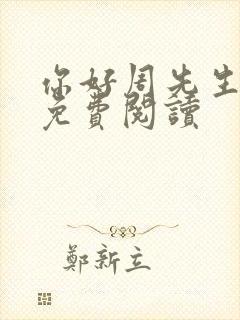 你好周先生
免費閱讀
鄭新立